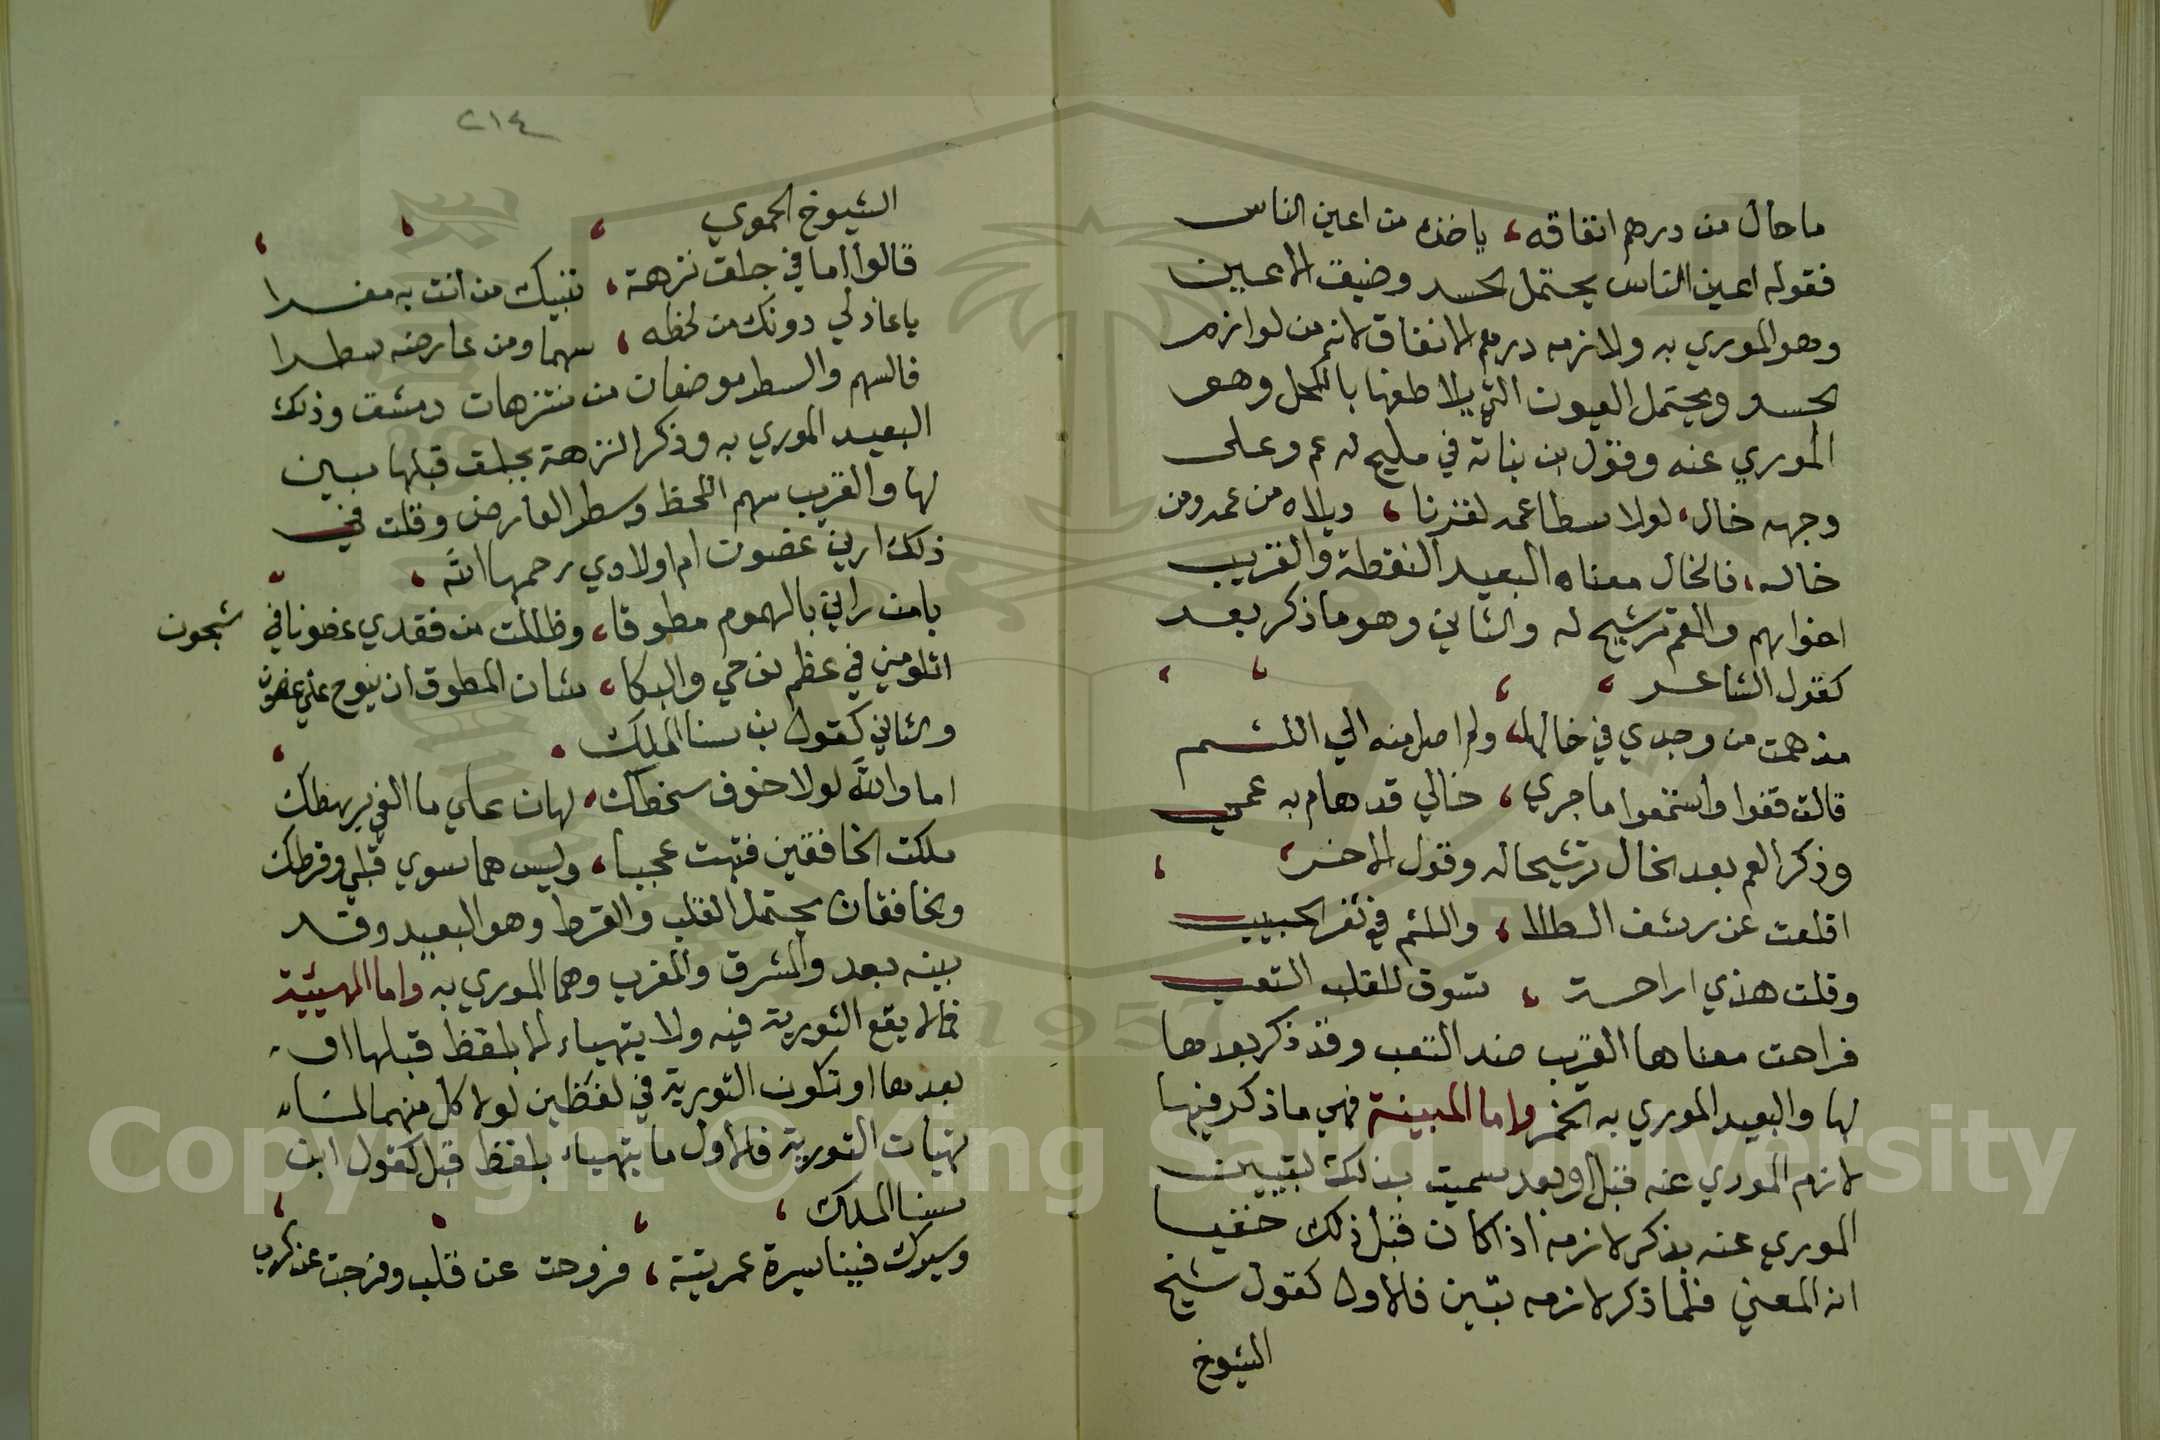 ما حال من درهم انفاقه، ياخذه من اعين الناس
فقوله اعين الناس يحتمل الحسد وضيق الاعين
وهو الموري به ولازمه درهم الانفاق لانه من لوازم
الحسد ويحتمل العيون التي يلاطفها بالكحل وهو
الموري عنه وقول بن نباتة في مليح له عم وعلى
وجهه خال، لولا سطا عمه لفزنا، ويلاه من عمه ومن
خاله، فالخال معناه البعيد النقطة والقريب
اخوا لهم والعم ترشيح له والثاني وهو ما ذكر بعد
كقول الشاعر
مذ همت من وجدي في خالها، ولم اصل منه الي اللثم
قالت قفوا واستمعوا ما جري، خالي قد هام به عمي
وذكر العم بعد الخال ترشيحا له وقول الاخر
اقلعت عن رشف الطلا، واللثم في ثغر الحبيب
وقلت هذي راحة، تسوق للقلب التعب
فراحت معناها القريب ضد التعب وقد ذكر بعدها
لها والبعيد الموري به الخمر واما المبينة فهي ما ذكر فيها
لازم الموري عنه قبل او بعد سميت بذلك لتبيين
الموري عنه بذكر لازمه اذا كان قبل ذلك خفيا
انه المعني فلما ذكر لازمه تبين فالاول كقول شيخ
الشيوخ
٢١٤
الشيوخ الحموي
قالوا اما في جلق نزهة، تنيك من انت به مغرا
يا عاذلي دونك من لحظه، سهما ومن عارضه سطرا
فالسهم والسطر موضعان من منتزهات دمشق وذلك
البعيد الموري به وذكر النزهة بجلق قبلها مبين
لها والقريب سهم اللحظ وسطر العارض وقلت في
ذلك ارثي غصون ام اولادي رحمها الله
يا من راني بالهموم مطوقا، وظللت من فقدي غصونا في شجون
اتلومني في عظم نوحي والبكا، شان المطوق ان ينوح علي غصون
والثاني كقول بن سنا الملك
اما والله لولا خوف سخطك، لهان علي ما القي برهطك
ملكت الخافقين فتهت عجبا، وليس هما سوي قلبي وقرطك
والخافقان يحتمل القلب والقرط وهو البعيد وقد
بينه بعد والمشرق والمغرب وهما الموري به واما المهيئة
فما لا يقع التورية فيه ولا يتهياء الا بلفظ قبلها او
بعدها او تكون التورية في لفظين لولا كل منهما لما
تهيات التورية فالاول ما يتهياء بلفظ قبل كقول ابن
سنا الملك
وسيرك فينا سيرة عمرية، فروحت عن قلب وفرجت عن كرب
Copyright © King Saud University
1957